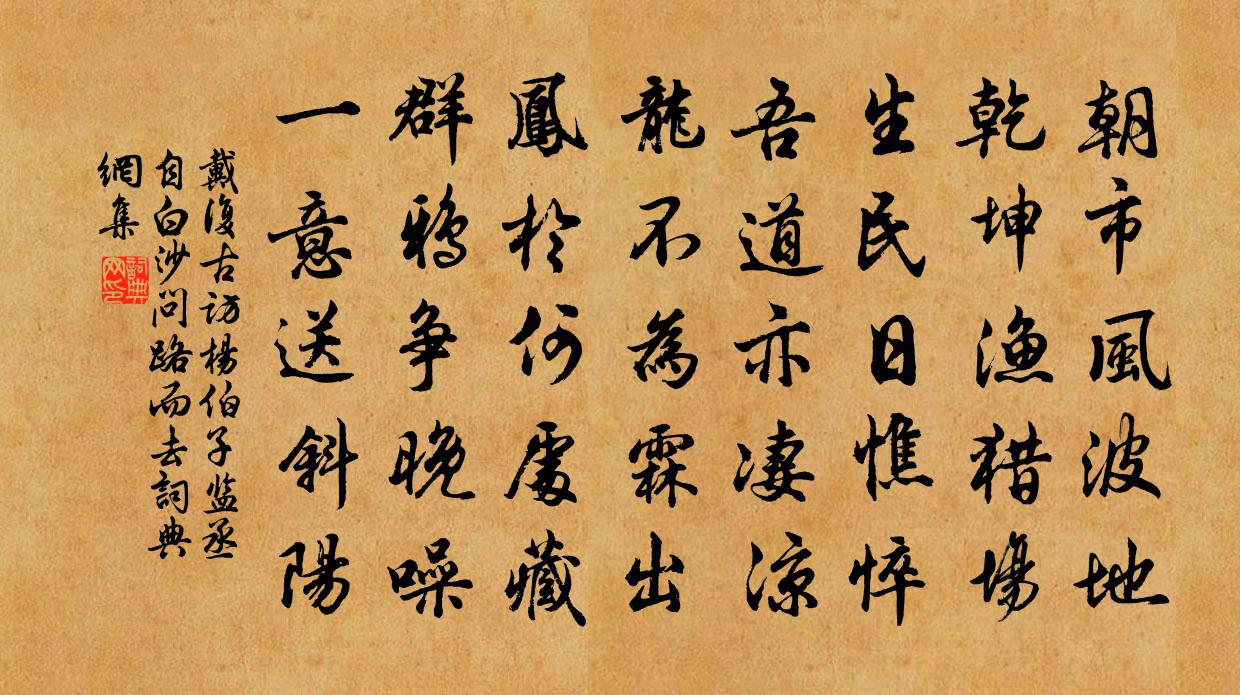 朝市風波地
乾坤漁猎場
生民日憔悴
吾道亦凄涼
龍不為霖出
鳳於何處藏
群鴉争晚噪
一意送斜陽
戴復古訪楊伯子监丞
自白沙問路而去詞典
網集
詞典
网印